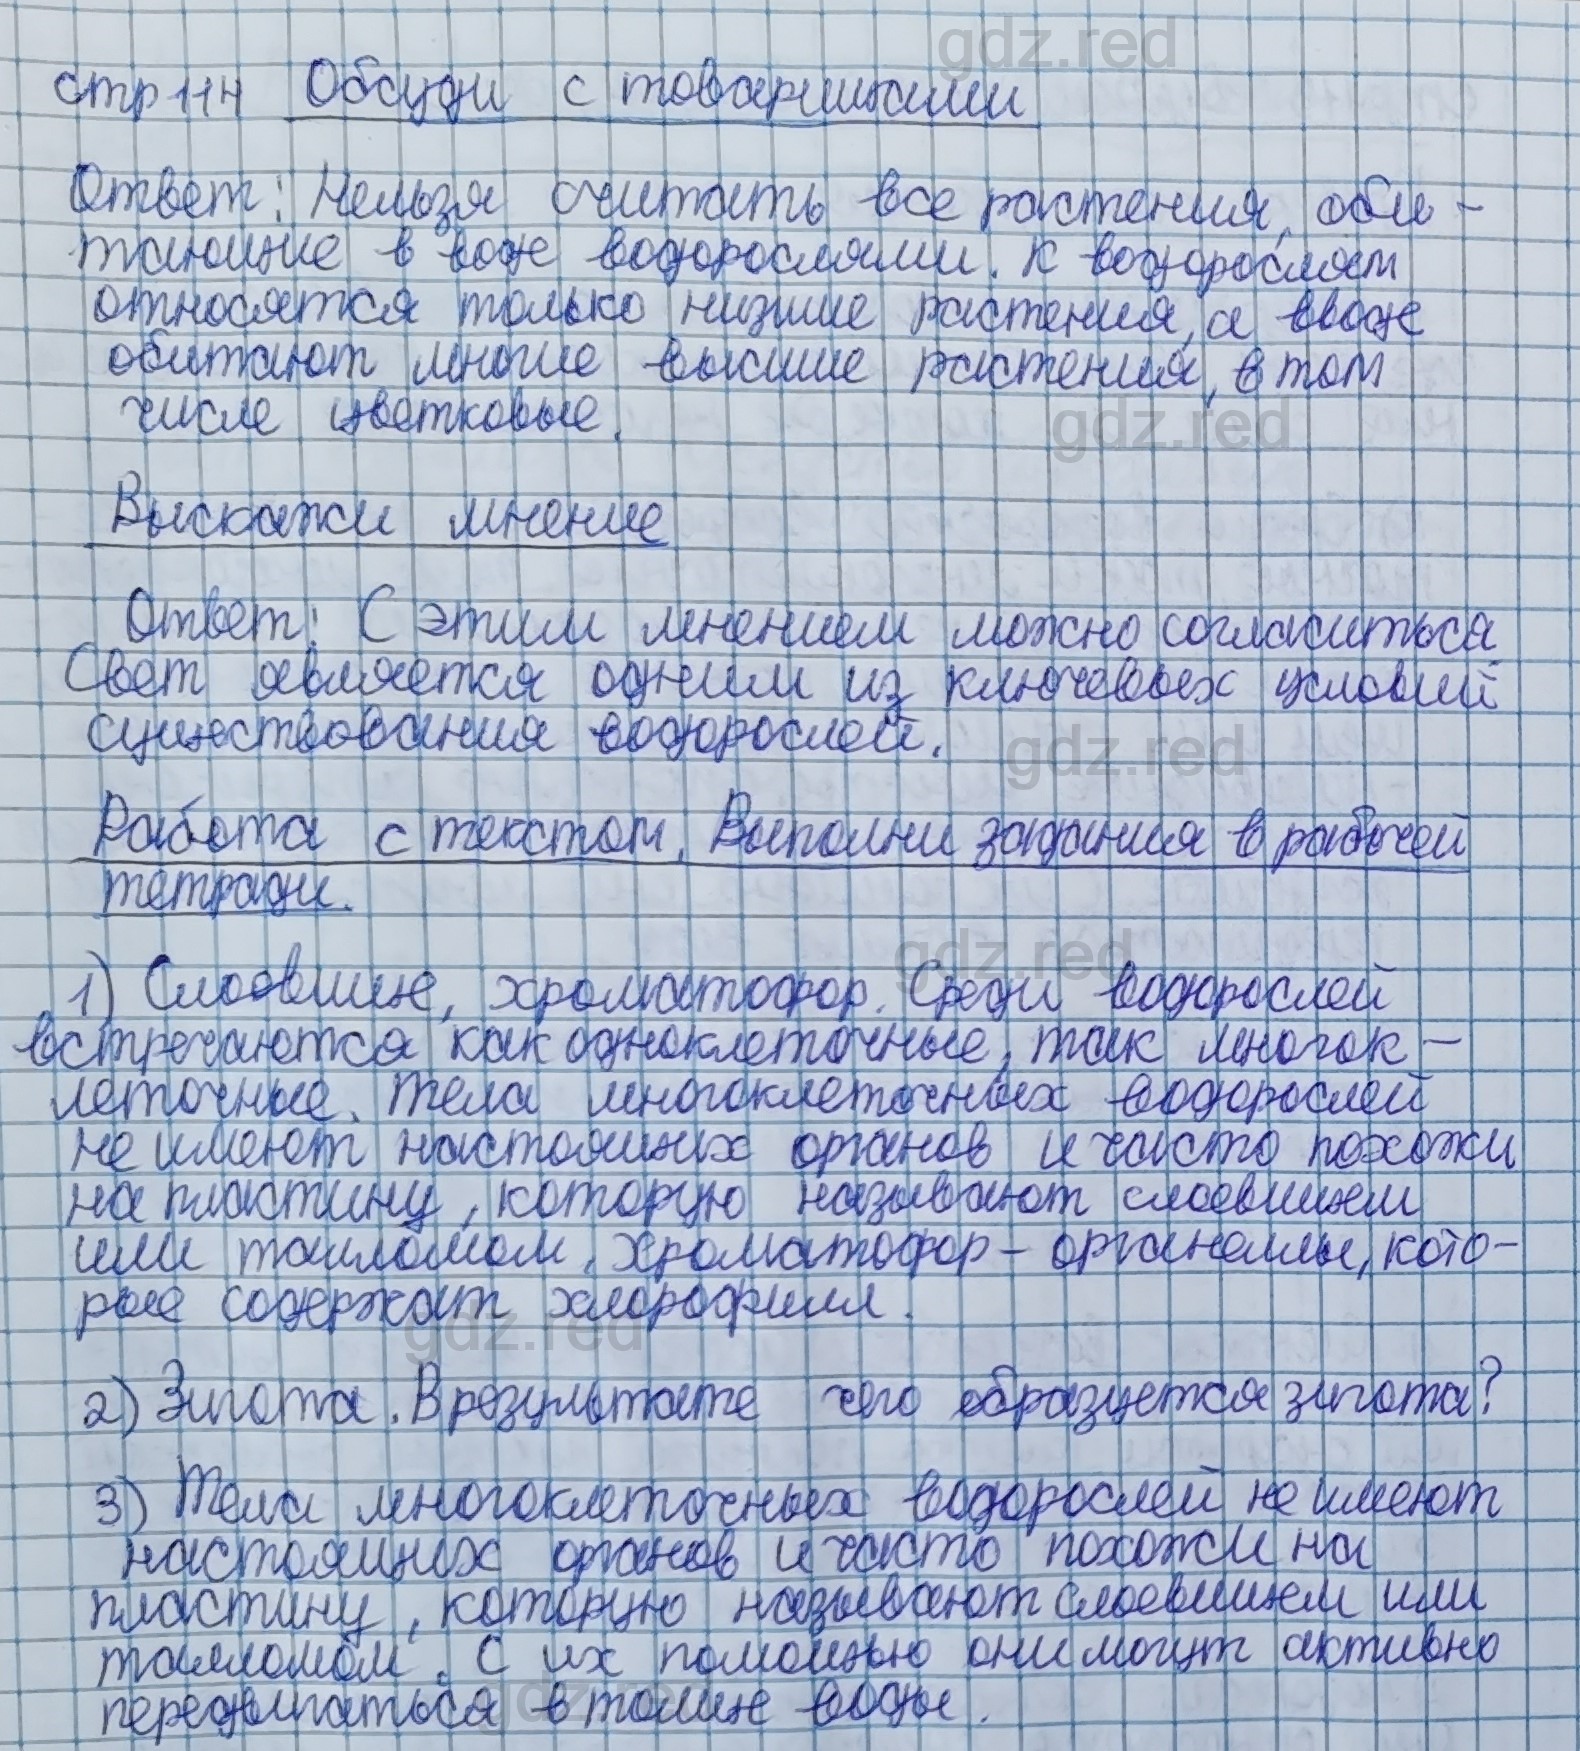 gdz.red
стр 114 Обсуди с товарищами
Ответ: Нельзя считать все растения, оби-
тающие в воде водорослями. К водорослям
относятся только низшие растения, а вводе
обитают многие высшие растения, в том
числе цветковые.
gdz.red
Выскажи мнение
Ответ: С этим мнением можно согласиться
Свет является одним из ключевых условий
существования водорослей.
gdz.red
Работа с текстом. Выполни задания в рабочей
тетради.
gdz.red
1) Слоевище, хроматофор. Среди водорослей
встречаются как одноклеточные, так многок-
леточные. Тела многоклеточных водорослей
не имеют настоящих органов и часто похожи
на пластину, которую называют слоевищем
или талломом. Хроматофор - органеллы, кото-
рые содержат хлорофилл.
gdz.red
2) Зигота. В результате чего образуется зигота?
3) Тела многоклеточных водорослей не имеют
настоящих органов и часто похожи на
пластину, которую называют слоевищем или
талломом. С их помощью они могут активно
передвигаться в толще воды.
gdz.red